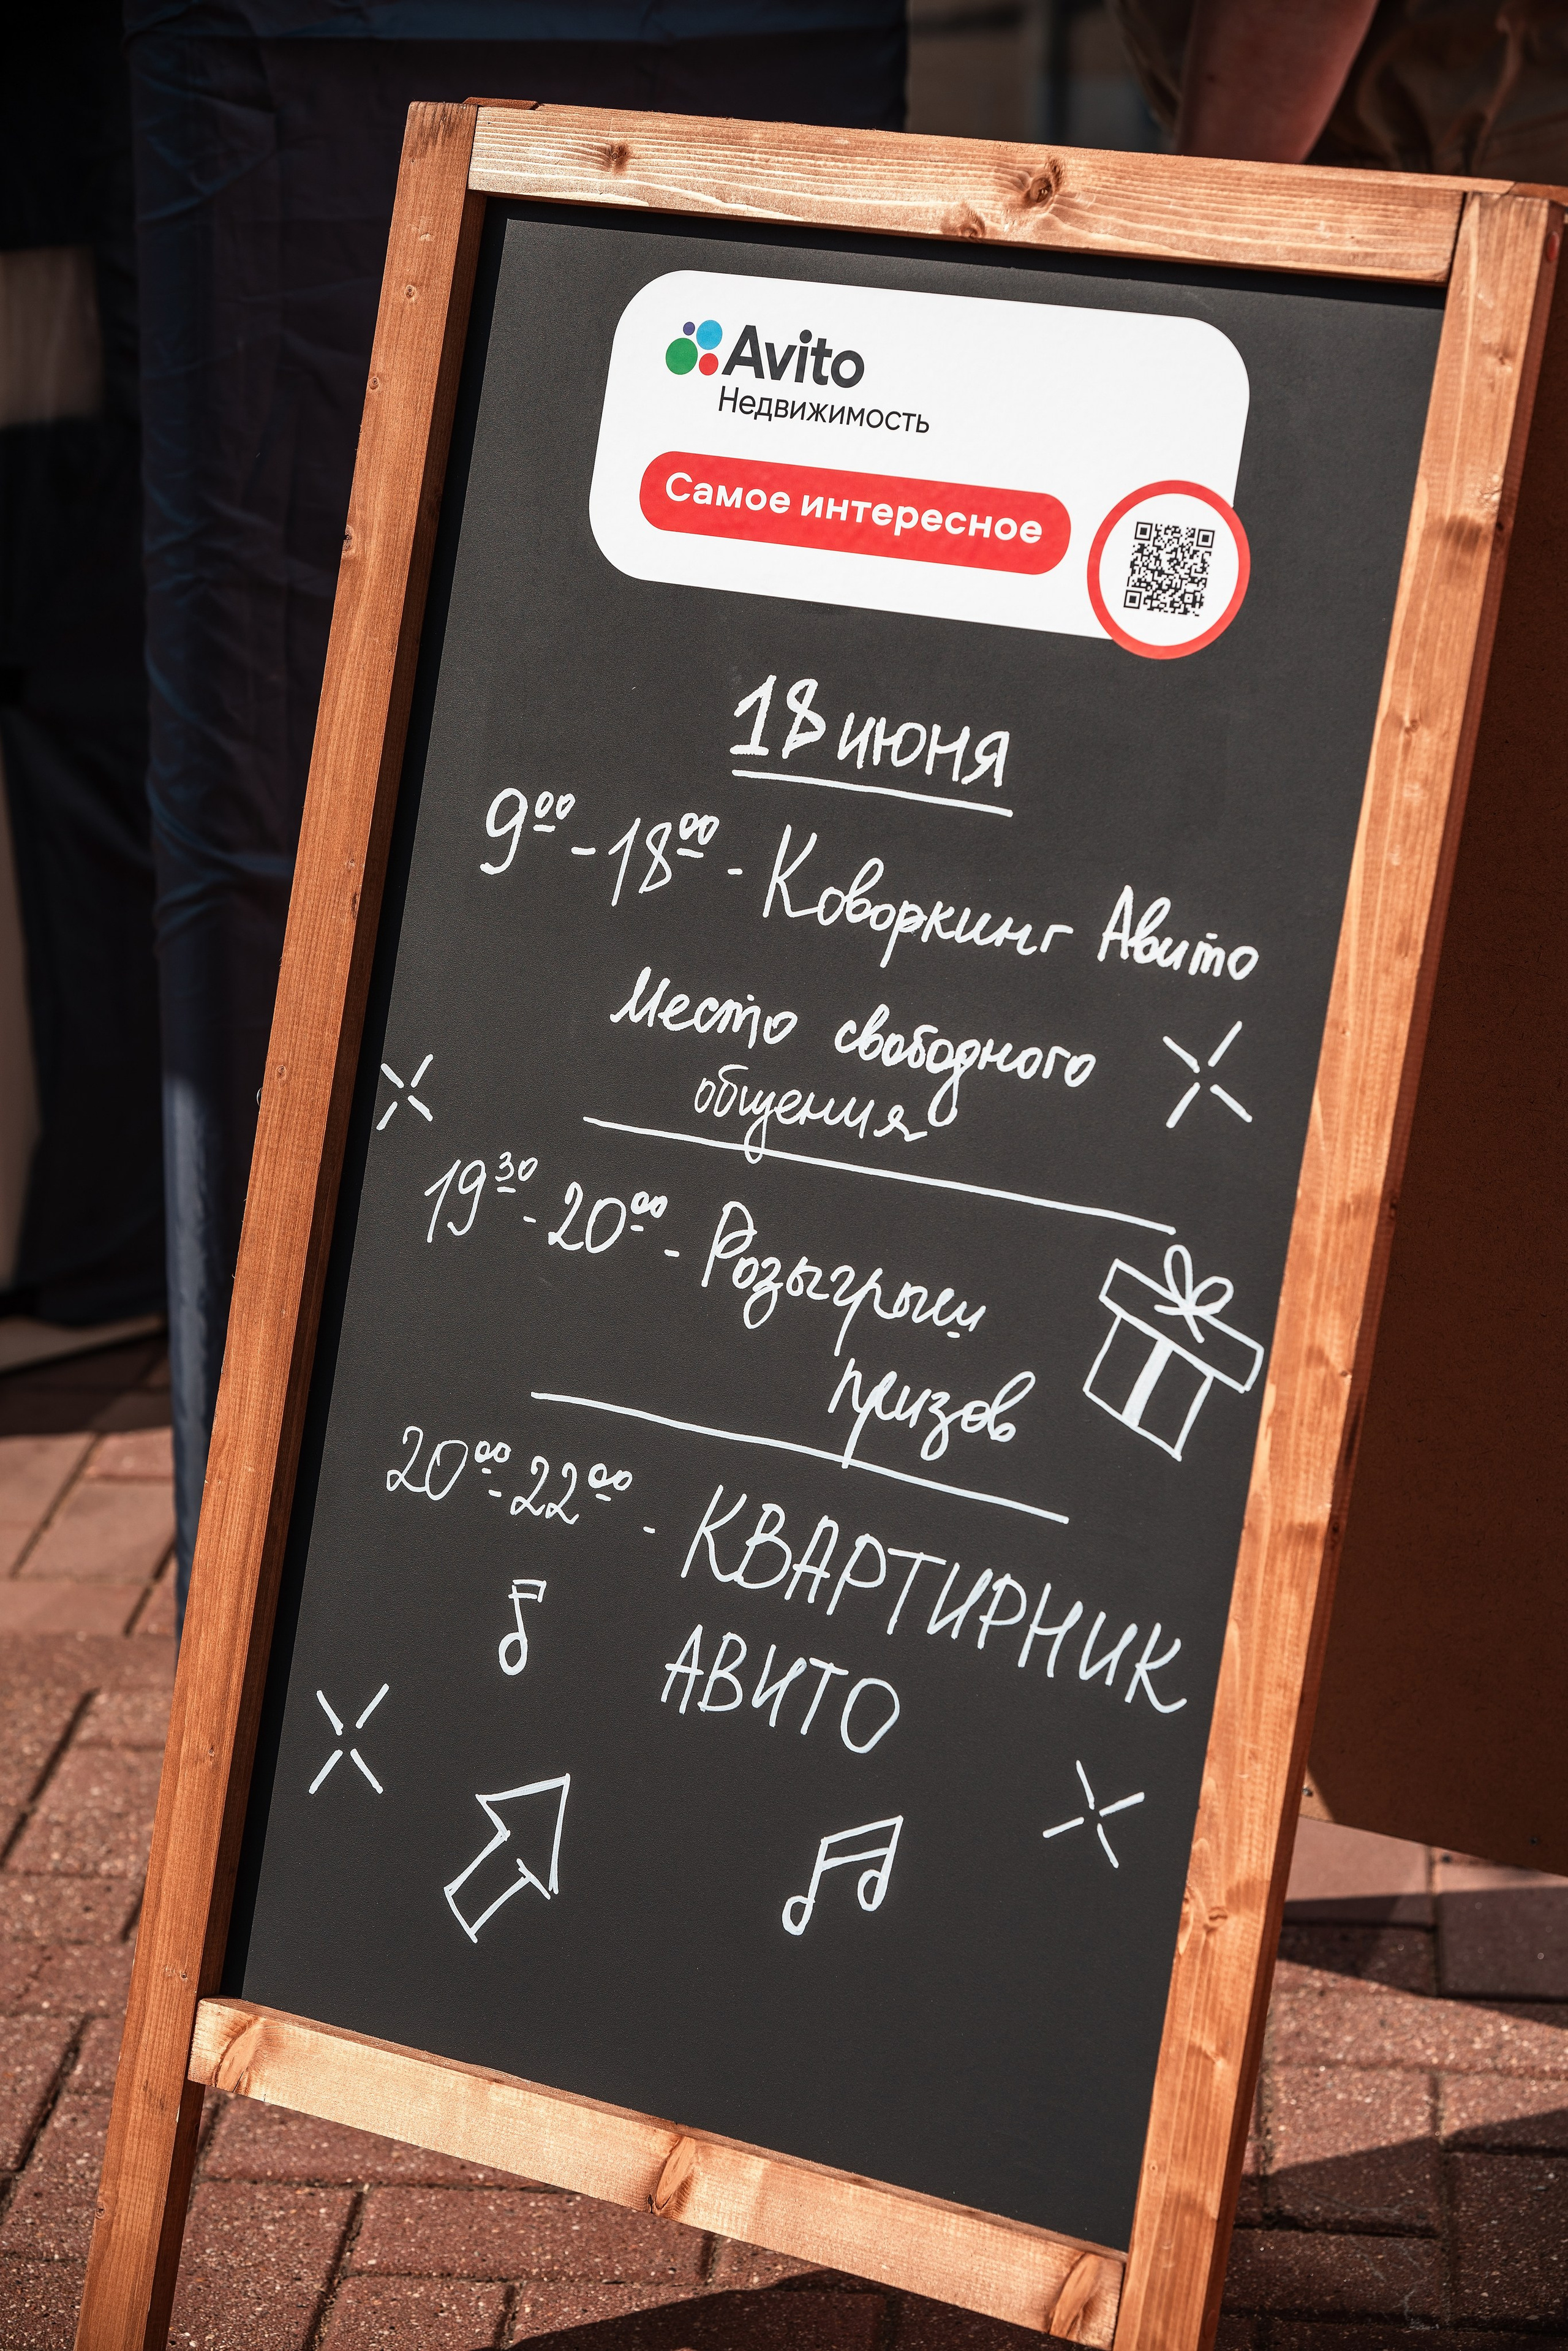 Avito
Недвижимость
Самое интересное
18 июня
9⁰⁰ - 18⁰⁰ - Коворкинг Авито
Место свободного
общения
19³⁰ - 20⁰⁰ - Розыгрыш
призов
20⁰⁰ - 22⁰⁰ - КВАРТИРНИК
АВИТО